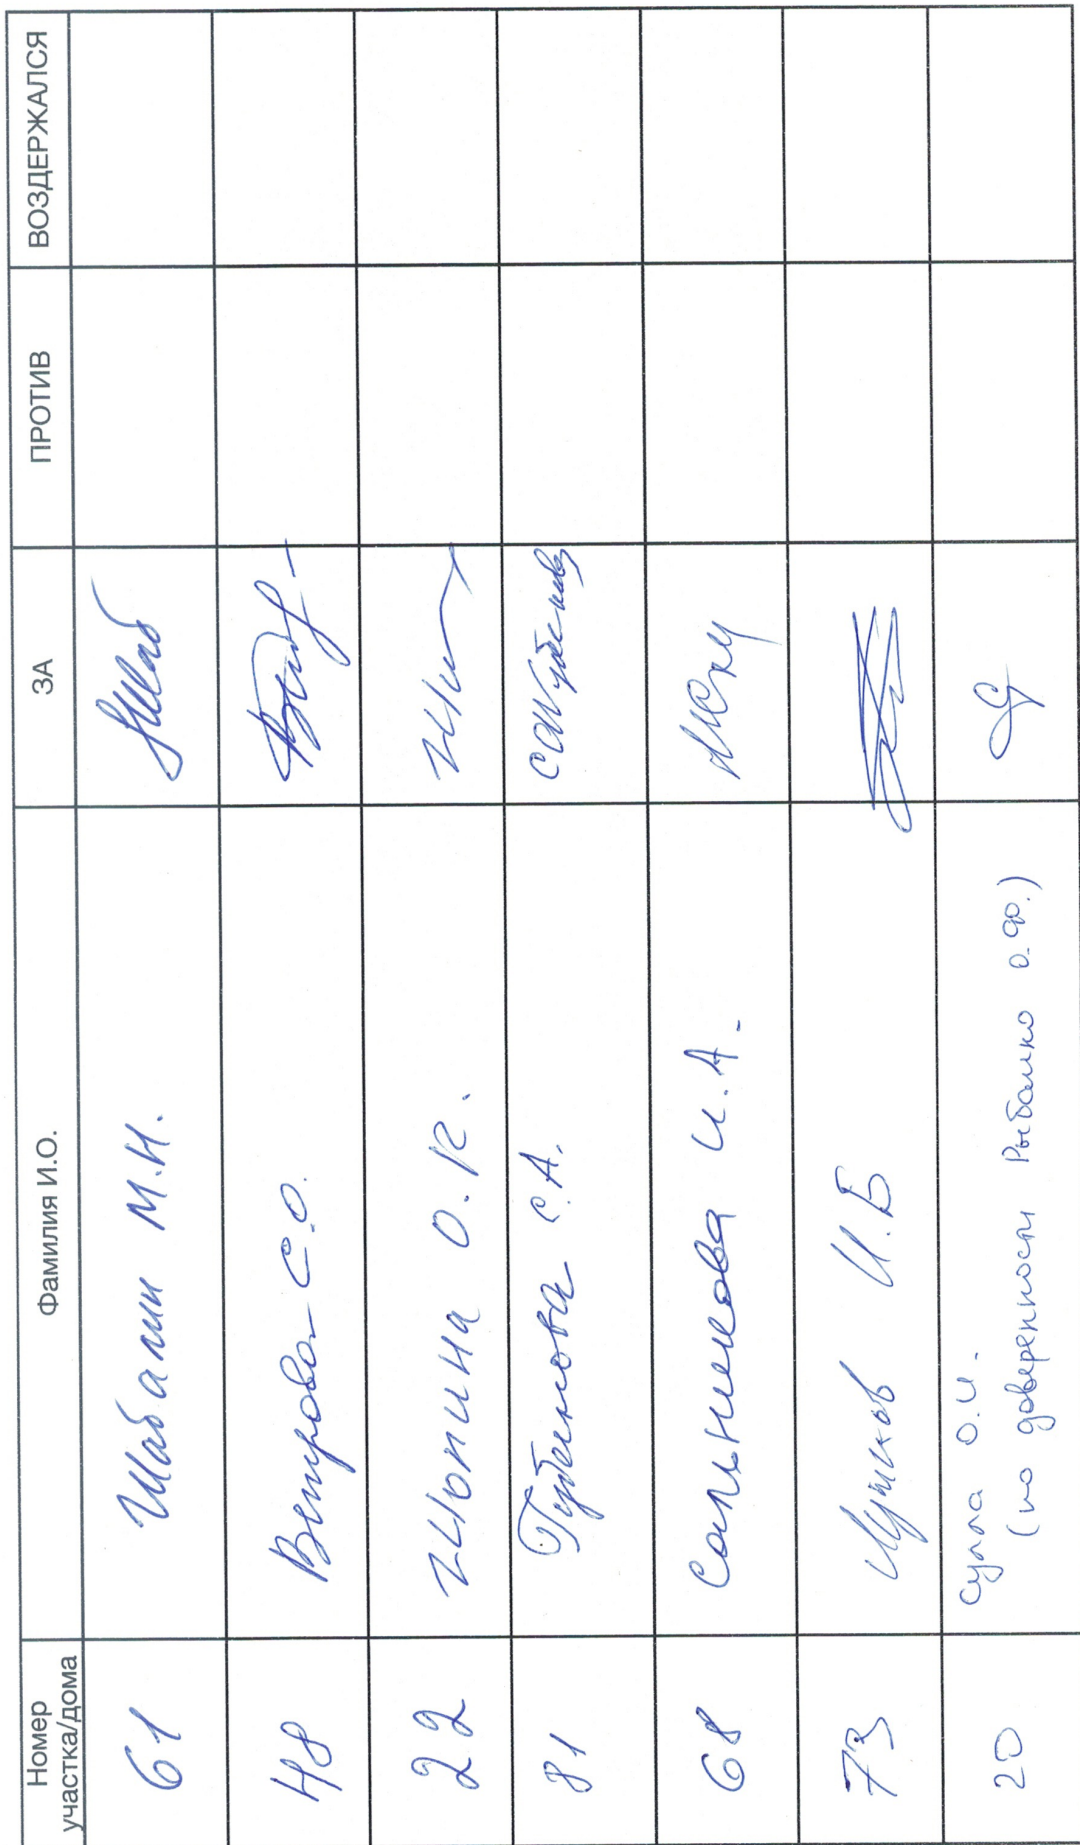 Номер участка/дома Фамилия И.О. ЗА ПРОТИВ ВОЗДЕРЖАЛСЯ
61 Шабалин М.Н.
48 Ветрова С.О.
22 Цюпина О.К.
81 Губенкова С.А.
68 Сальникова И.А.
73 И.Б
20 О.И.
(по доверенности Рыбалко О.Ф.)